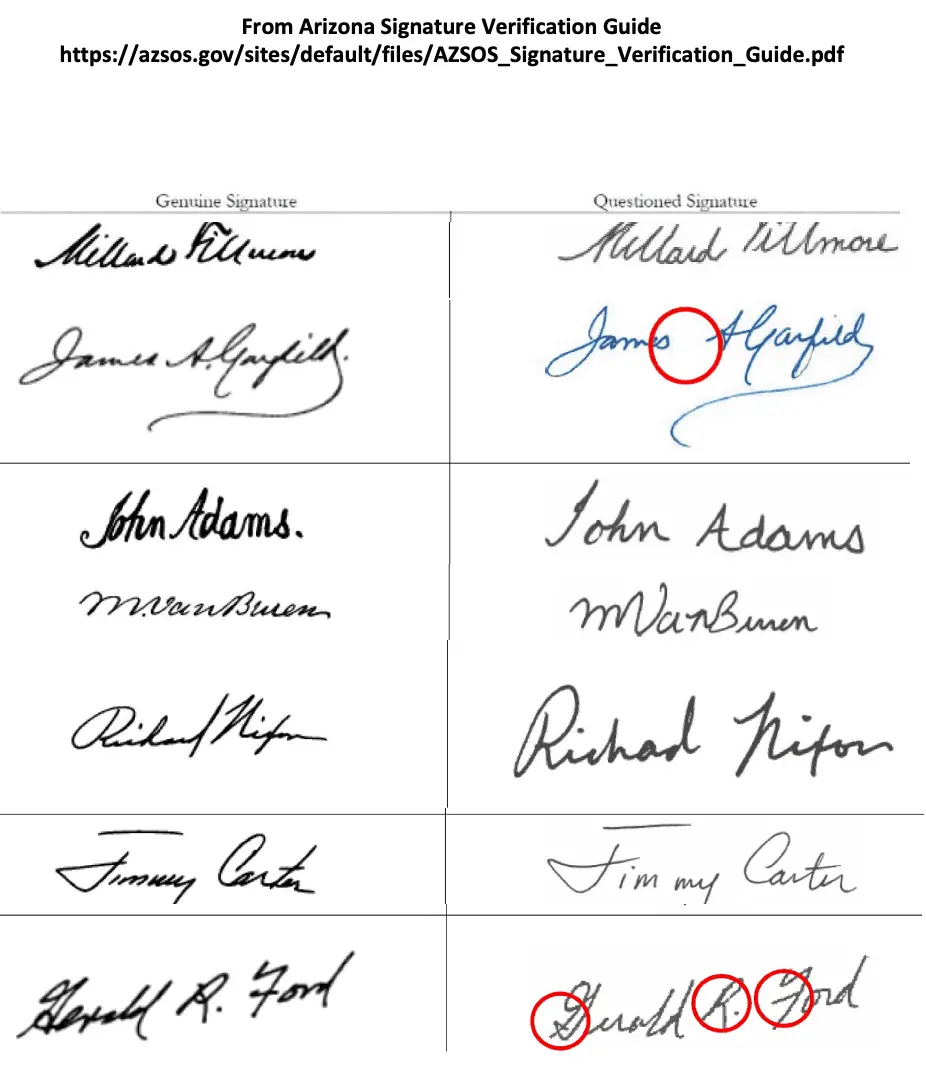 From Arizona Signature Verification Guide
https://azsos.gov/sites/default/files/AZSOS_Signature_Verification_Guide.pdf
Genuine Signature Questioned Signature
Millard Fillmore Millard Fillmore
James A. Garfield. James A Garfield
John Adams. John Adams
M. Van Buren M Van Buren
Richard Nixon Richad Nixon
Jimmy Carter Jimmy Carter
Gerald R. Ford Gerald R. Ford